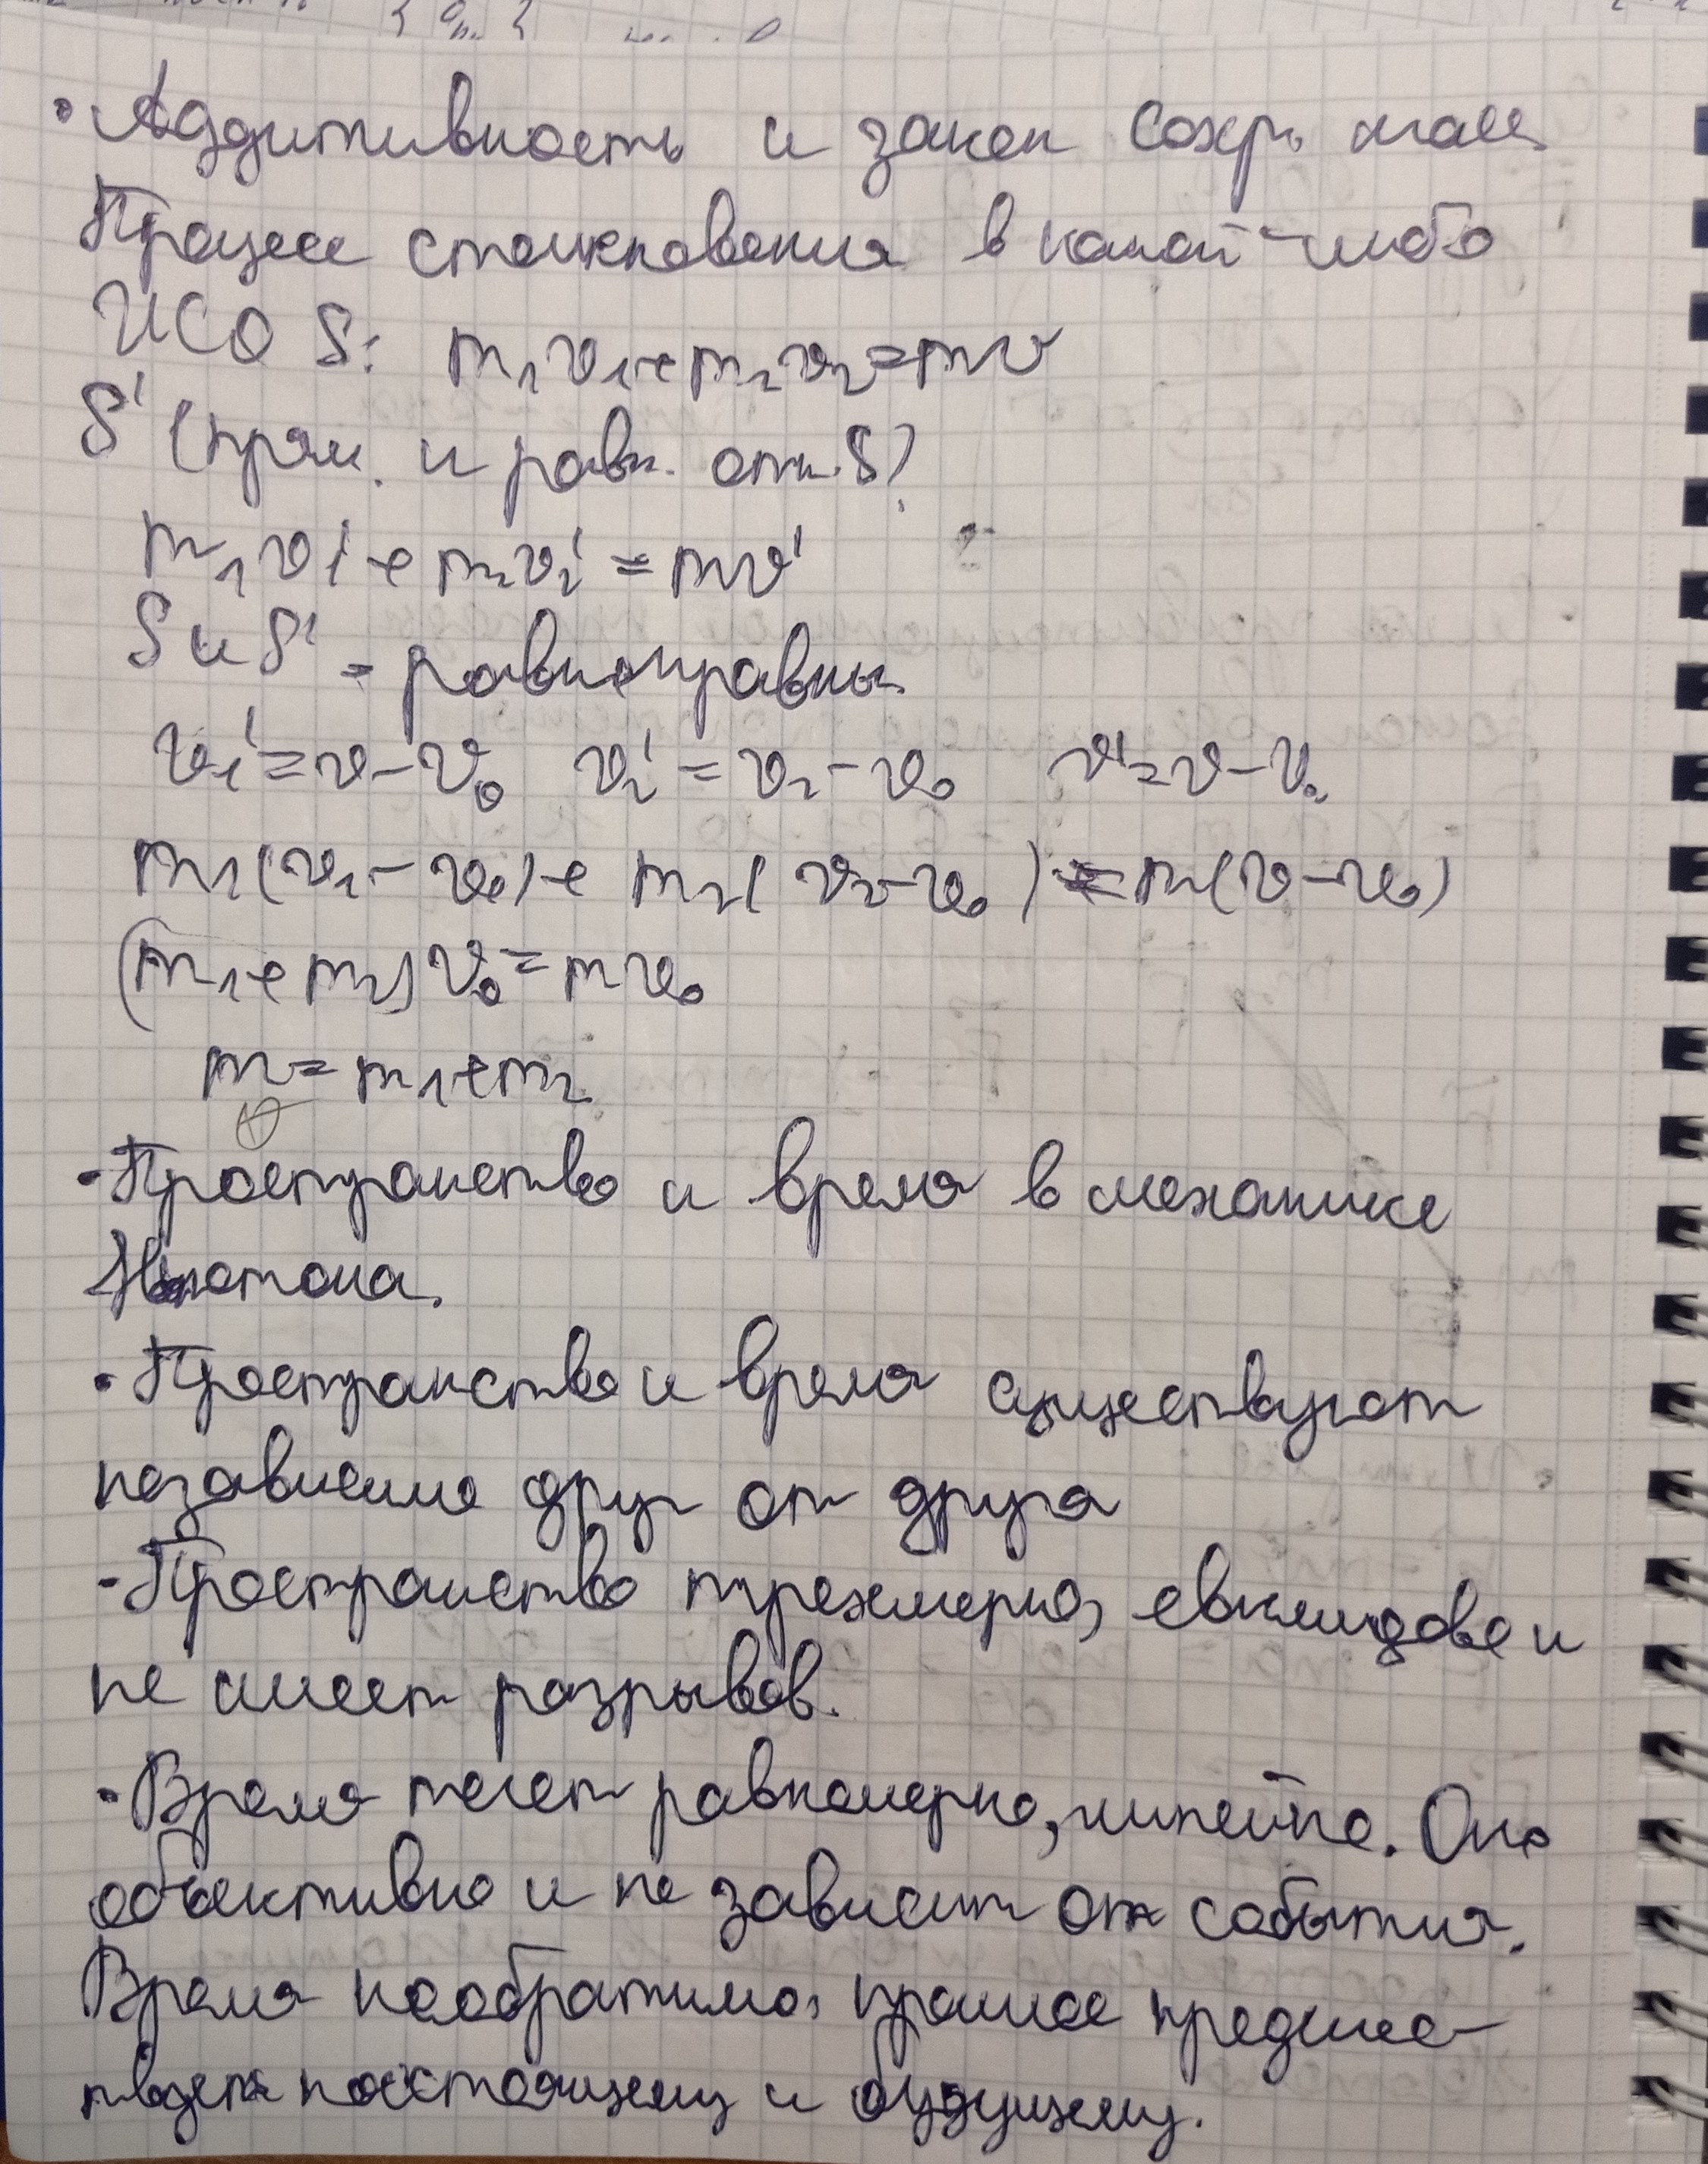 • Аддитивность и закон сохр. масс
Процесс столкновения в какой-либо
ИСО S: m₁v₁+m₂v₂=mv
S' (прям. и равн. отн. S)
m₁v₁'+m₂v₂'=mv'
S и S' - равноправны.
v₁'=v-v₀ v₂'=v₂-v₀ v'=v-v₀
m₁(v₁-v₀)+m₂(v₂-v₀)=m(v-v₀)
(m₁+m₂)v₀=mv₀
m=m₁+m₂
- Пространство и время в механике
Ньютона.
• Пространство и время существуют
независимо друг от друга
- Пространство трехмерно, евклидово и
не имеет разрывов.
• Время течет равномерно, линейно. Оно
объективно и не зависит от события.
Время необратимо, прошлое предшес-
твует настоящему и будущему.